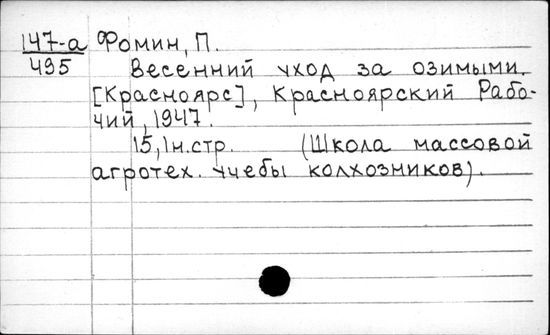 147-а Фомин, П.
495
Весенний уход за озимыми.
[Красноярс], Красноярский Рабо-
чий, 1947.
15,1н.стр. (Школа массовой
агротех. учебы колхозников).